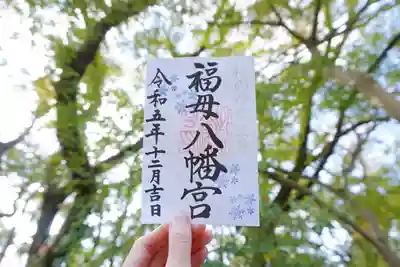 福母八幡宮
令和五年十二月吉日